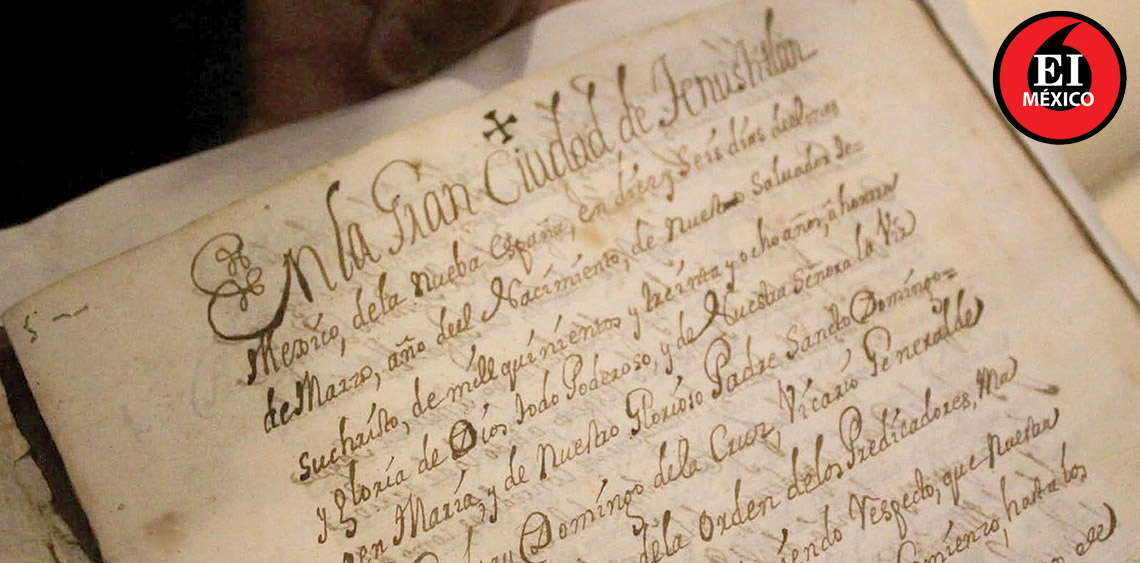 EI
MÉXICO
En la Gran Ciudad de Tenustitlan
Mexico, de la Nueba España, en diez y seis dias del mes
de Marzo, año del Nacimiento, de nuestro Salvador Je=
suchristo, de mill quinientos y treinta y ocho años, á honra
y gloria de Dios todo Poderoso, y de Nuestra Señora la Vir
gen María, y de Nuestro Glorioso Padre Santo Domingo=
Domingo de la Cruz, Vicario General de
de la Orden de los Predicadores,
Respecto, que Nuestra
hasta los